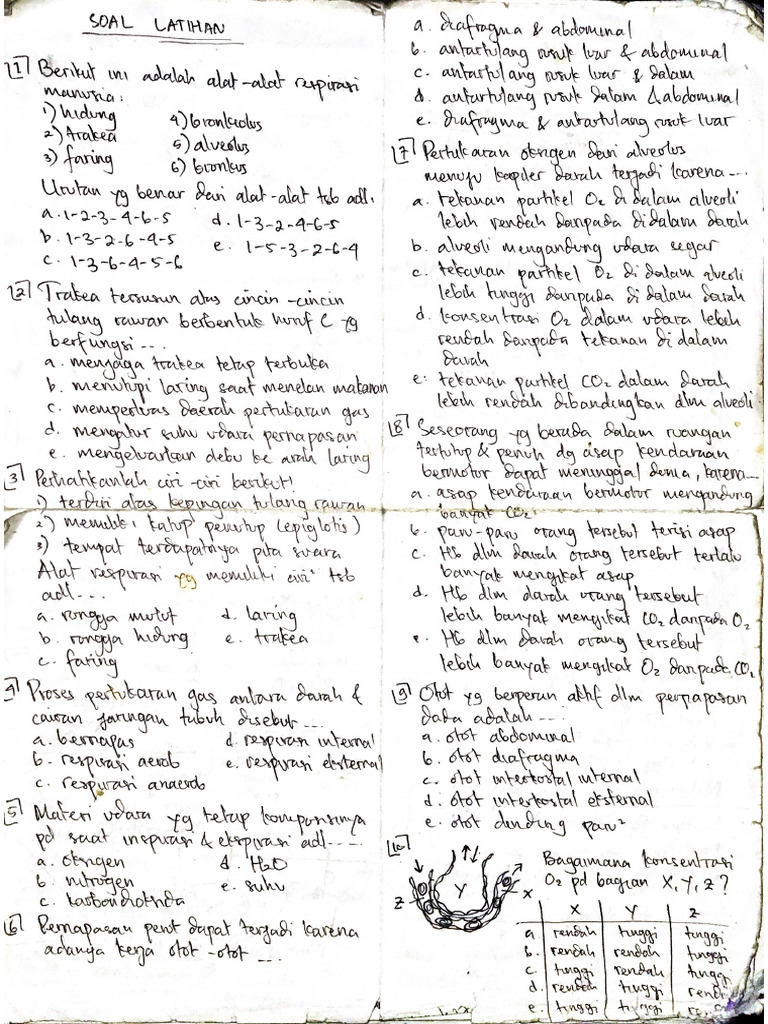 SOAL LATIHAN
1 Berikut ini adalah alat-alat respirasi
manusia:
1) hidung 4) bronkiolus
2) trakea 5) alveolus
3) faring 6) bronkus
Urutan yg benar dari alat-alat tsb adl.
a. 1-2-3-4-6-5 d. 1-3-2-4-6-5
b. 1-3-2-6-4-5 e. 1-5-3-2-6-4
c. 1-3-6-4-5-6
2 Trakea tersusun atas cincin-cincin
tulang rawan berbentuk huruf C yg
berfungsi ....
a. menjaga trakea tetap terbuka
b. menutupi laring saat menelan makanan
c. memperluas daerah pertukaran gas
d. mengatur suhu udara pernapasan
e. mengeluarkan debu ke arah laring
3 Perhatikanlah ciri-ciri berikut!
1) terdiri atas kepingan tulang rawan
2) memiliki katup penutup (epiglotis)
3) tempat terdapatnya pita suara
Alat respirasi yg memiliki ciri² tsb
adl....
a. rongga mulut d. laring
b. rongga hidung e. trakea
c. faring
4 Proses pertukaran gas antara darah &
cairan jaringan tubuh disebut ....
a. bernapas d. respirasi internal
b. respirasi aerob e. respirasi eksternal
c. respirasi anaerob
5 Materi udara yg tetap komposisinya
pd saat inspirasi & ekspirasi adl.....
a. oksigen d. H2O
b. nitrogen e. suhu
c. karbondioksida
6 Pernapasan perut dapat terjadi karena
adanya kerja otot-otot ....
a. diafragma & abdominal
b. antartulang rusuk luar & abdominal
c. antartulang rusuk luar & dalam
d. antartulang rusuk dalam & abdominal
e. diafragma & antartulang rusuk luar
7 Pertukaran oksigen dari alveolus
menuju kapiler darah terjadi karena....
a. tekanan partikel O2 di dalam alveoli
lebih rendah daripada didalam darah
b. alveoli mengandung udara segar
c. tekanan partikel O2 di dalam alveoli
lebih tinggi daripada di dalam darah
d. konsentrasi O2 dalam udara lebih
rendah daripada tekanan di dalam
darah
e. tekanan partikel CO2 dalam darah
lebih rendah dibandingkan dlm alveoli
8 Seseorang yg berada dalam ruangan
tertutup & penuh dg asap kendaraan
bermotor dapat meninggal dunia, karena...
a. asap kendaraan bermotor mengandung
banyak CO2
b. paru-paru orang tersebut terisi asap
c. Hb dlm darah orang tersebut terlalu
banyak mengikat asap
d. Hb dlm darah orang tersebut
lebih banyak mengikat CO2 daripada O2
e. Hb dlm darah orang tersebut
lebih banyak mengikat O2 daripada CO2
9 Otot yg berperan aktif dlm pernapasan
dada adalah....
a. otot abdominal
b. otot diafragma
c. otot interkostal internal
d. otot interkostal eksternal
e. otot dinding paru²
10 Bagaimana konsentrasi
O2 pd bagian X, Y, Z?
Z Y X
X Y Z
a. rendah tinggi tinggi
b. rendah rendah tinggi
c. tinggi rendah tinggi
d. rendah tinggi
e. tinggi tinggi